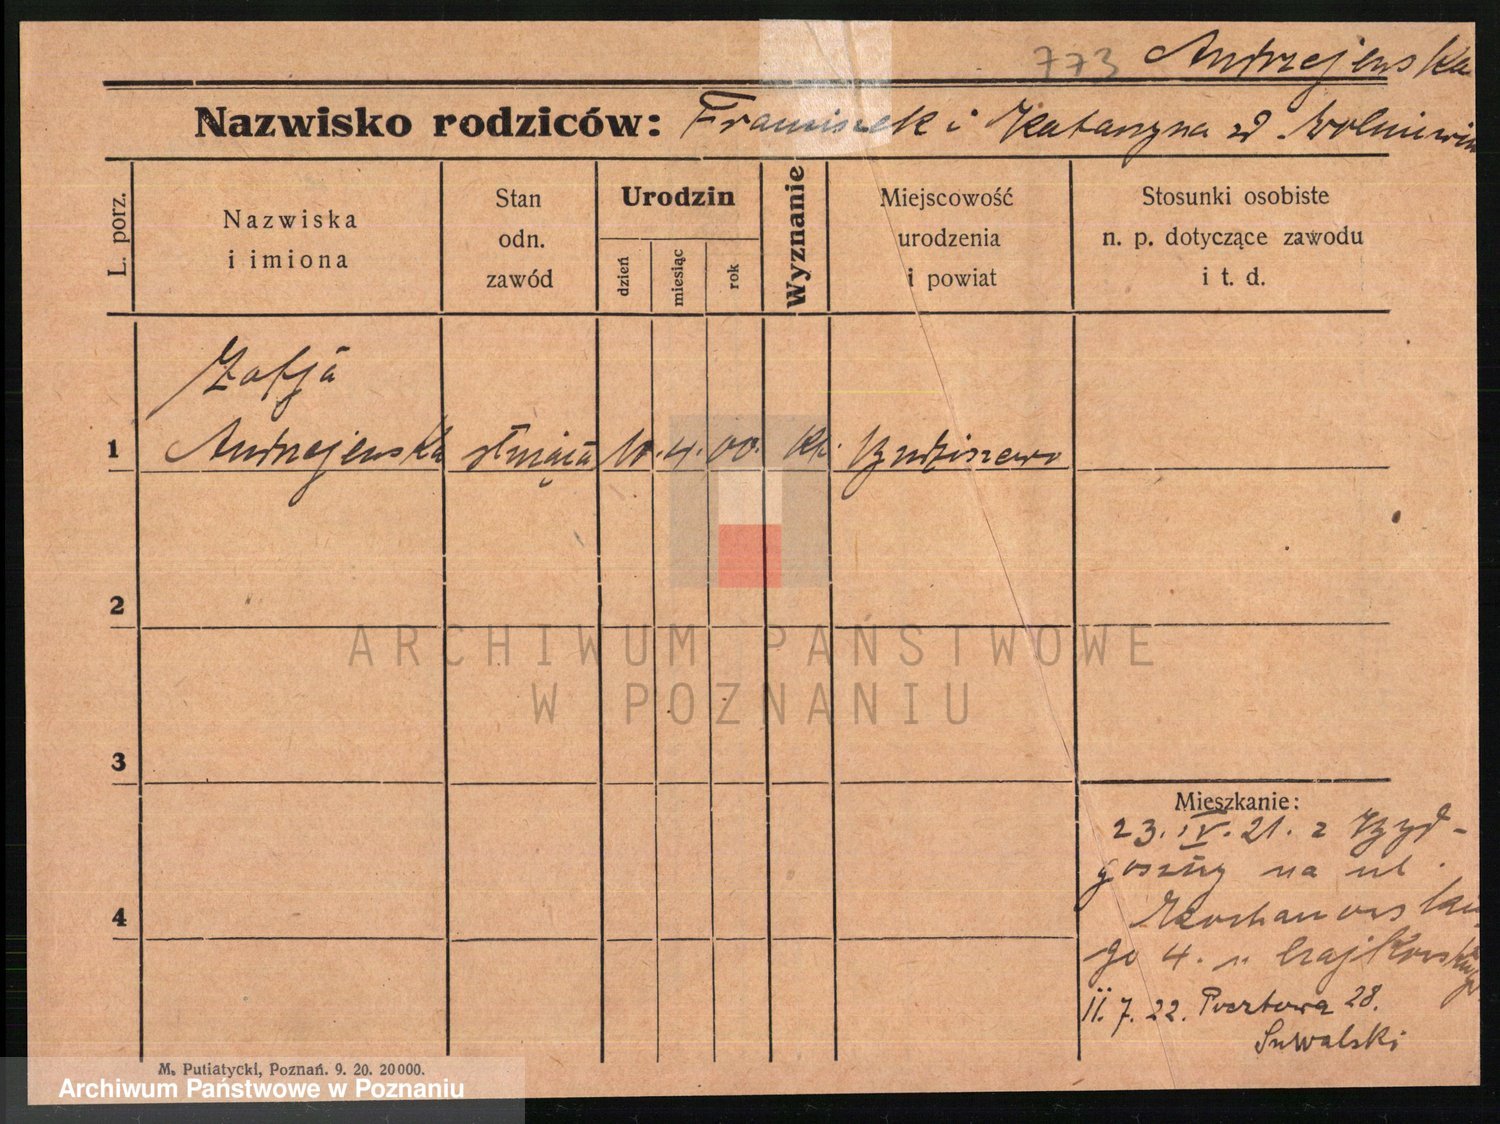 773 Andrzejewska
Nazwisko rodziców: Franciszek i Katarzyna zd.
L. porz.
Nazwiska
i imiona
Stan
odn.
zawód
Urodzin
dzień
miesiąc
rok
Wyznanie
Miejscowość
urodzenia
i powiat
Stosunki osobiste
n. p. dotyczące zawodu
i t. d.
Zofja
1 Andrzejewska służąca 10. 4. 00. kt. Budziszewo
2
3
4
Mieszkanie:
23. IV. 21. z Byd-
goszczy na ul.
Kochanowskie
go 4. u Czajkowskiego
11. 7. 22. Pocztowa 28.
Suwalski
M. Putiatycki, Poznań. 9. 20. 20000.
ARCHIWUM PAŃSTWOWE
W POZNANIU
Archiwum Państwowe w Poznaniu